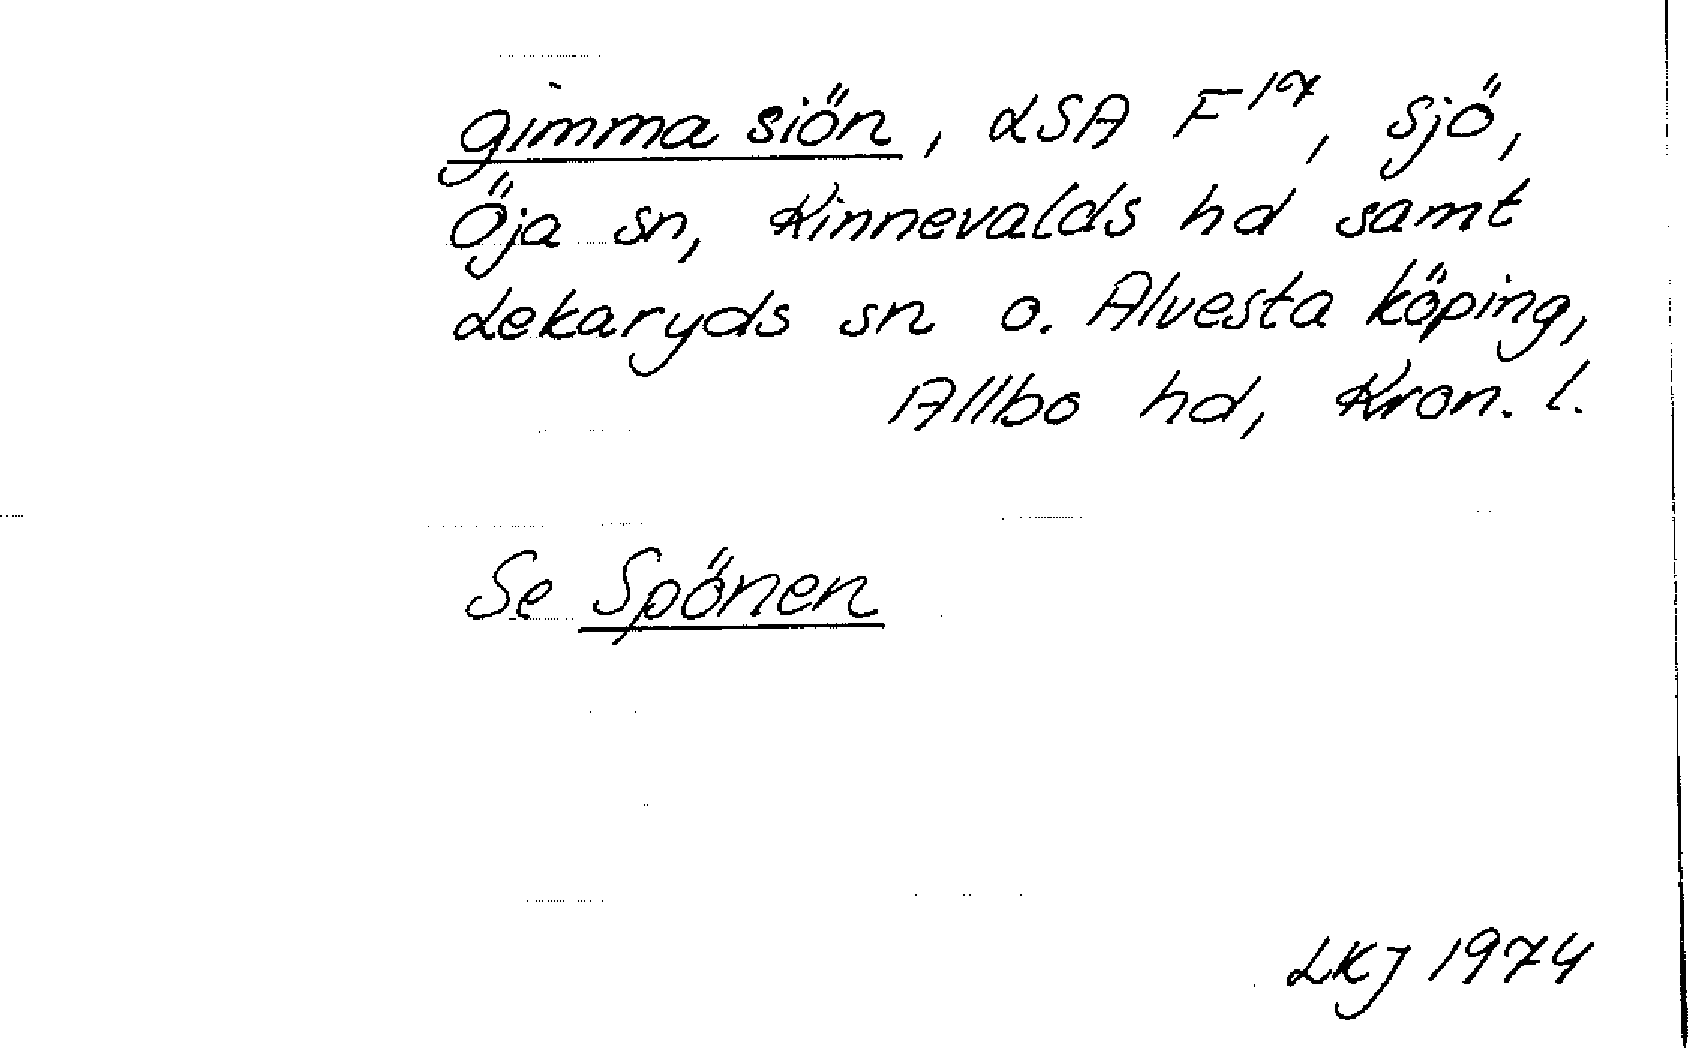 gimma siön, LSA F17, sjö,
Öja sn, Kinnevalds hd samt
Lekaryds sn o. Alvesta köping,
Allbo hd, Kron. l.
Se Spönen
LKJ 1974